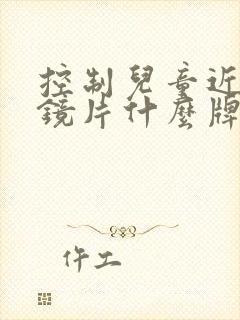 控制兒童近
鏡片什麼牌
仵工